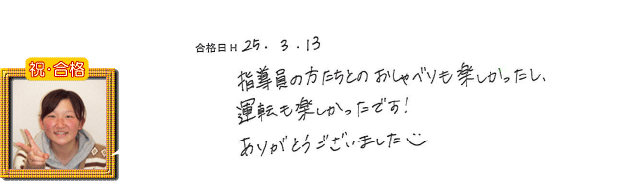 合格日H 25. 3. 13
祝・合格
指導員の方たちとのおしゃべりも楽しかったし、
運転も楽しかったです!
ありがとうございました